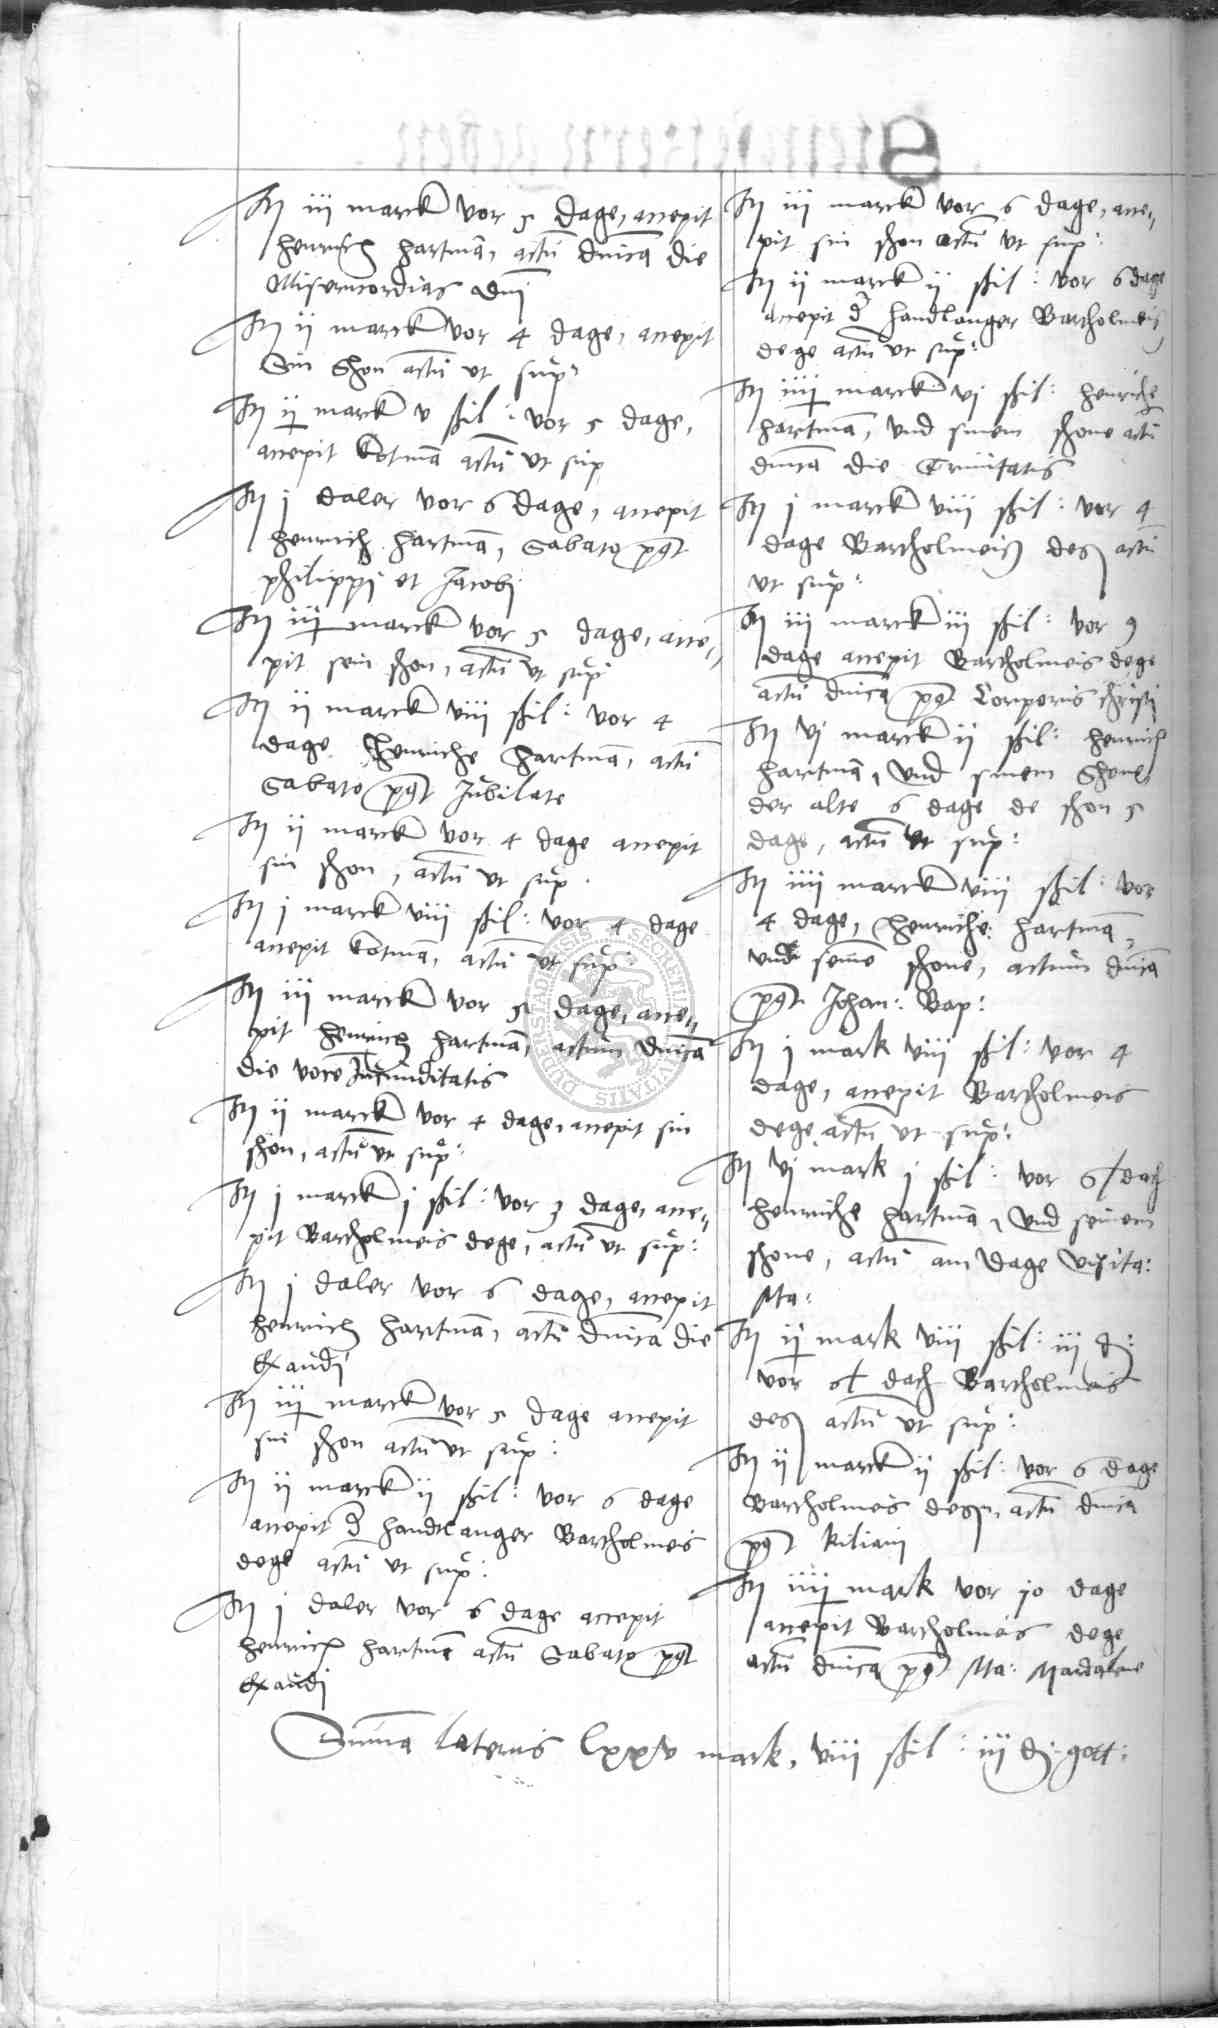 It iij marck vor 5 dage, accepit
Henrich Hartmã, actũ dnica die
Misericordias dnj
It ij marck vor 4 dage, accepit
Sin Shon actũ ut sup:
It ij marck v ßil: vor 5 dage,
accepit Cotmã actũ ut sup
It j daler vor 6 dage, accepit
Henrich Hartmã, Sabato post
philippi et Jacobi
It iij marck vor 5 dage, acce„
pit sein shon, actũ ut sup
It ij marck viij ßil: vor 4
dage Henriche Hartmã, actũ
Sabato post Jubilate
It ij marck vor 4 dage accepit
sin shon, actũ ut sup.
It j marck viij ßil: vor 4 dage
accepit Cotmã, actũ ut sup:
It iij marck vor 5 dage, acce„
pit Henrich Hartmã, actum dnica
die vocẽ Jucunditatis
It ij marck vor 4 dage, accepit sin
shon, actũ ut sup:
It j marck j ßil: vor 3 dage, acce„
pit Bartholmeis dege, actũ ut sup:
It j daler vor 6 dage, accepit
Henrich Hartmã, actũ dnica die
Exaudi
It iij marck vor 5 dage accepit
sin shon actũ ut sup:
It ij marck ij ßil: vor 6 dage
accepit d' Handtlanger Bartholmeis
dege actũ ut sup:
It j daler vor 6 dage accepit
Henrich Hartmã actũ Sabato post
Exaudi
It iij marck vor 6 dage, acce„
pit sin shon actũ ut sup:
It ij marck ij ßil: vor 6 dage
accepit d' Handlanger Bartholmeis
dege actũ ut sup:
It iiij marck vj ßil: Henriche
Hartmã, und sinem shone actũ
dnica die Trinitatis
It j marck viij ßil: vor 4
dage Bartholmeis deg actũ
ut sup:
It iij marck iij ßil: vor 9
dage accepit Bartholmeis dege
actũ dnica post Corporis Christi
It vj marck ij ßil: Henrich
Hartmã, und sinem Shone,
der alte 6 dage de shon 5
dage, actũ ut sup:
It iiij marck viij ßil: vor
4 dage, Henriche Hartmã,
und seinẽ shone, actum dnica
post Johan: Bap:
It j mark viij ßil: vor 4
dage, accepit Bartholmeis
dege actũ ut sup:
It vj mark j ßil: vor 6 dach
Henriche Hartmã, und seinem
shone, actũ am dage visita:
Ma:
It ij mark viij ßil: iij d:
vor dach Bartholmeis
deg actũ ut sup:
It ij marck ij ßil: vor 6 dage
Bartholmeis deg, actũ dnica
post Kiliani
It iiij mark vor 10 dage
accepit Bartholmeis dege
actũ dnica post Ma: Magdalene
Summa lateris lxxv mark, viij ßil: iij d gott: